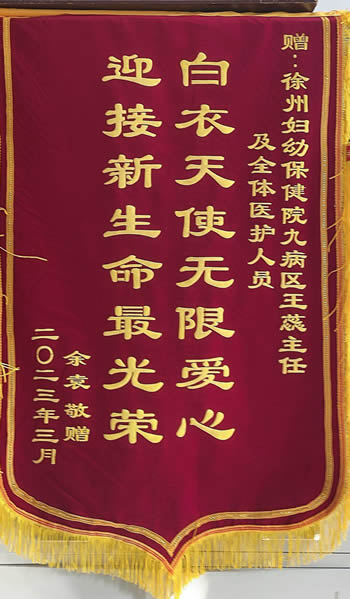 赠:徐州妇幼保健院九病区王蕊主任
及全体医护人员
白衣天使无限爱心
迎接新生命最光荣
余袁敬赠
二〇二三年三月